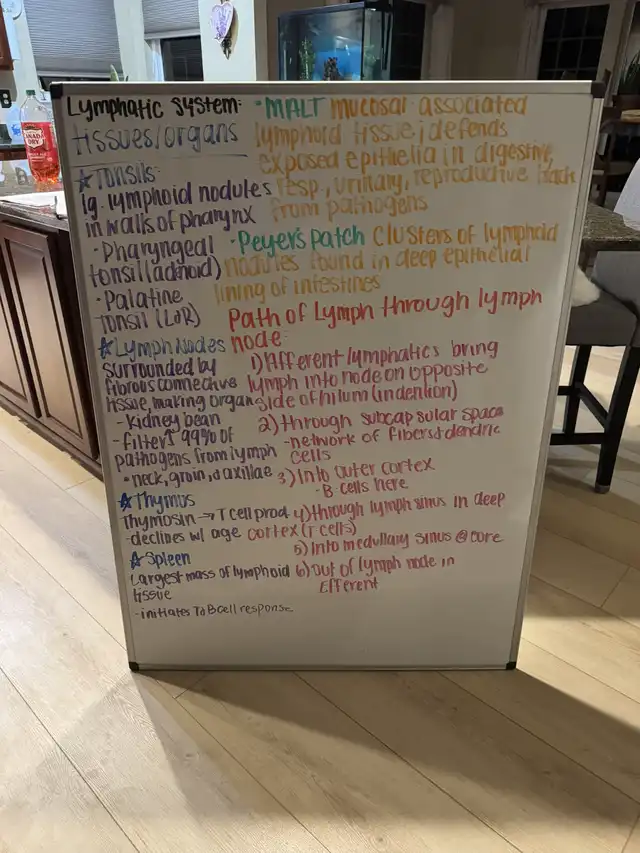 CANADA
DRY
Lymphatic System:
tissues/organs
☆Tonsils
lg. lymphoid nodules
in walls of pharynx
· Pharyngeal
tonsil (adnoid)
· Palatine
Tonsil (L&R)
☆Lymph Nodes
surrounded by
fibrous connective
tissue, making organ
- Kidney bean
- filters 99% of
pathogens from lymph
• neck, groin, & axillae
☆Thymus
Thymosin → T cell prod.
- declines w/ age
☆Spleen
Largest mass of lymphoid
tissue
- initiates T&B cell response
· MALT mucosal associated
lymphoid tissue; defends
exposed epithelia in digestive,
resp., urinary, reproductive track
from pathogens
· Peyer's Patch Clusters of lymphoid
nodules found in deep epithelial
lining of intestines
Path of Lymph through lymph
node:
1) Afferent lymphatics bring
lymph into node on opposite
side of hilum (indention)
2) through subcapsular space
- network of fibers & dendric
cells
3) Into outer cortex
- B cells here
4) through lymph sinus in deep
cortex (T cells)
5) Into medullary sinus @ core
6) Out of lymph node in
Efferent